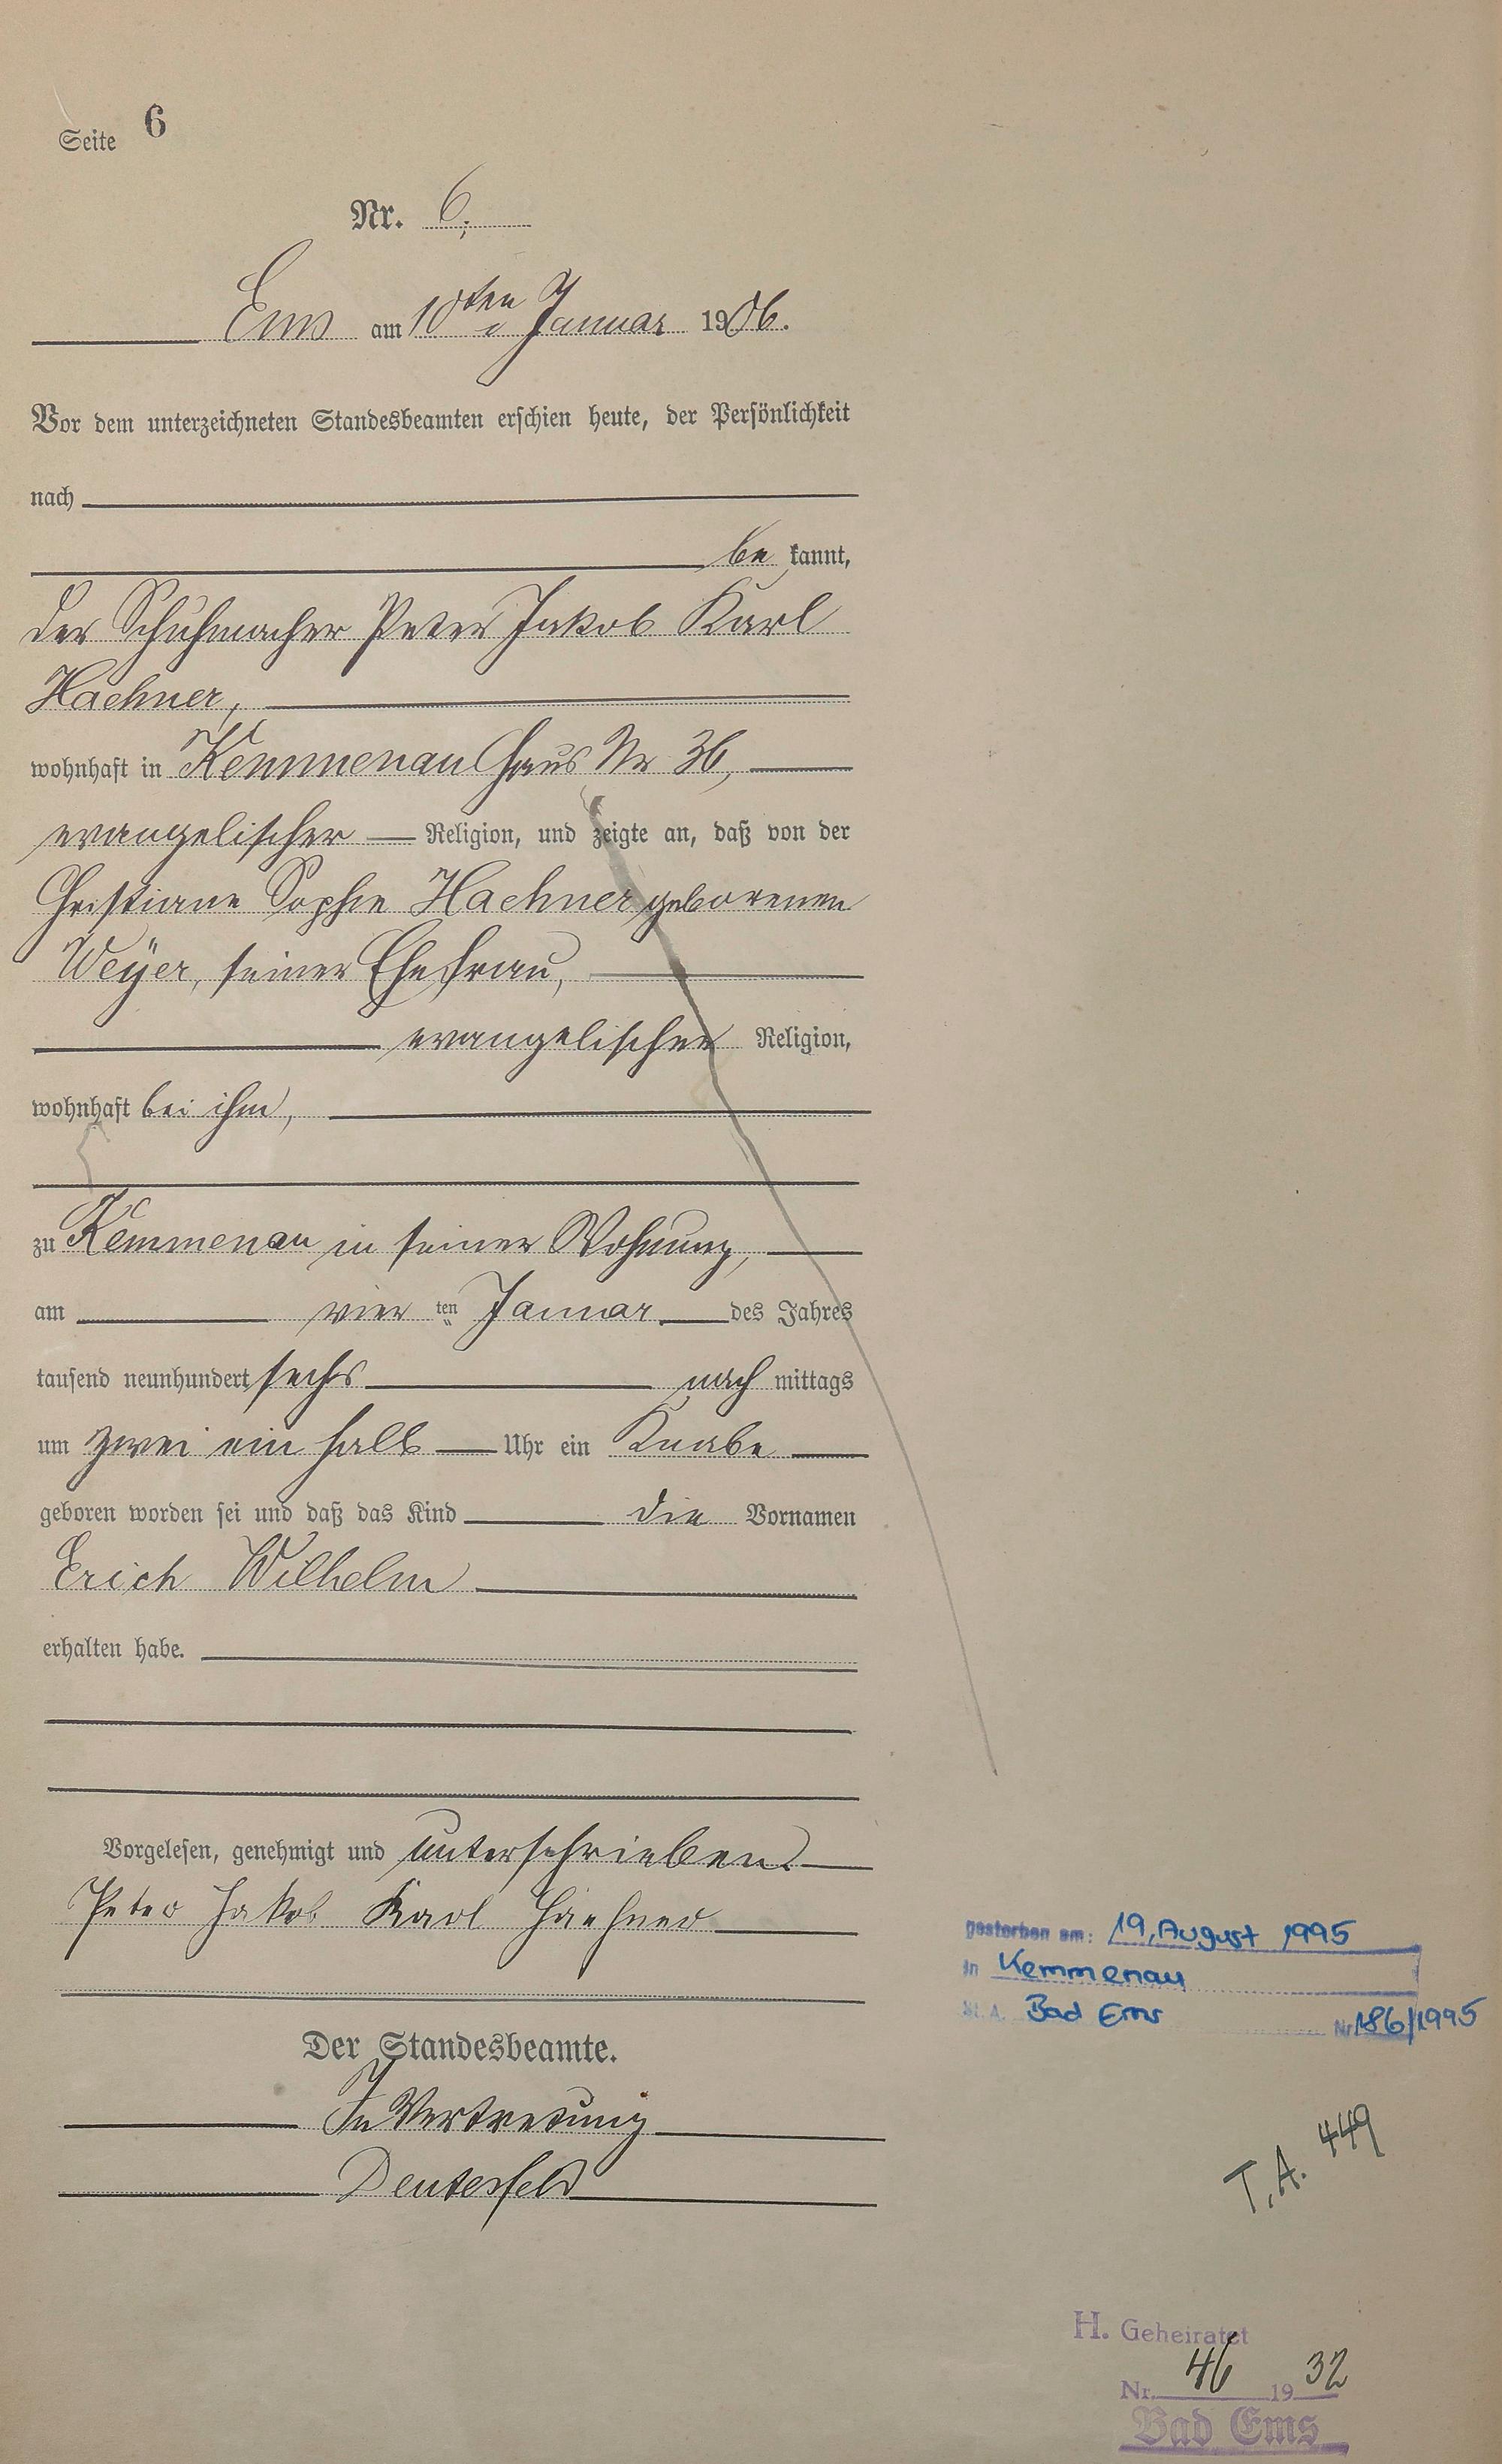 Seite 6
Nr. 6.
Ems am 10ten Januar 1906.
Vor dem unterzeichneten Standesbeamten erschien heute, der Persönlichkeit
nach
be kannt,
der Schuhmacher Peter Jakob Karl
Haehner,
wohnhaft in Kemmenau Haus Nr 36,
evangelischer Religion, und zeigte an, daß von der
Christiane Sophie Haehner geborenen
Weÿer, seiner Ehefrau,
evangelischer Religion,
wohnhaft bei ihm,
zu Kemmenau in seiner Wohnung,
am vier ten Januar des Jahres
tausend neunhundert sechs nach mittags
um zwei ein halb Uhr ein Knabe
geboren worden sei und daß das Kind die Vornamen
Erich Wilhelm
erhalten habe.
Vorgelesen, genehmigt und unterschrieben.
Peter Jakob Karl Haehner
Der Standesbeamte.
In Vertretung
gestorben am: 19. August 1995
in Kemmenau
St. A. Bad Ems Nr. 186/1995
T. A. 449
H. Geheiratet
Nr. 46 1932
Bad Ems